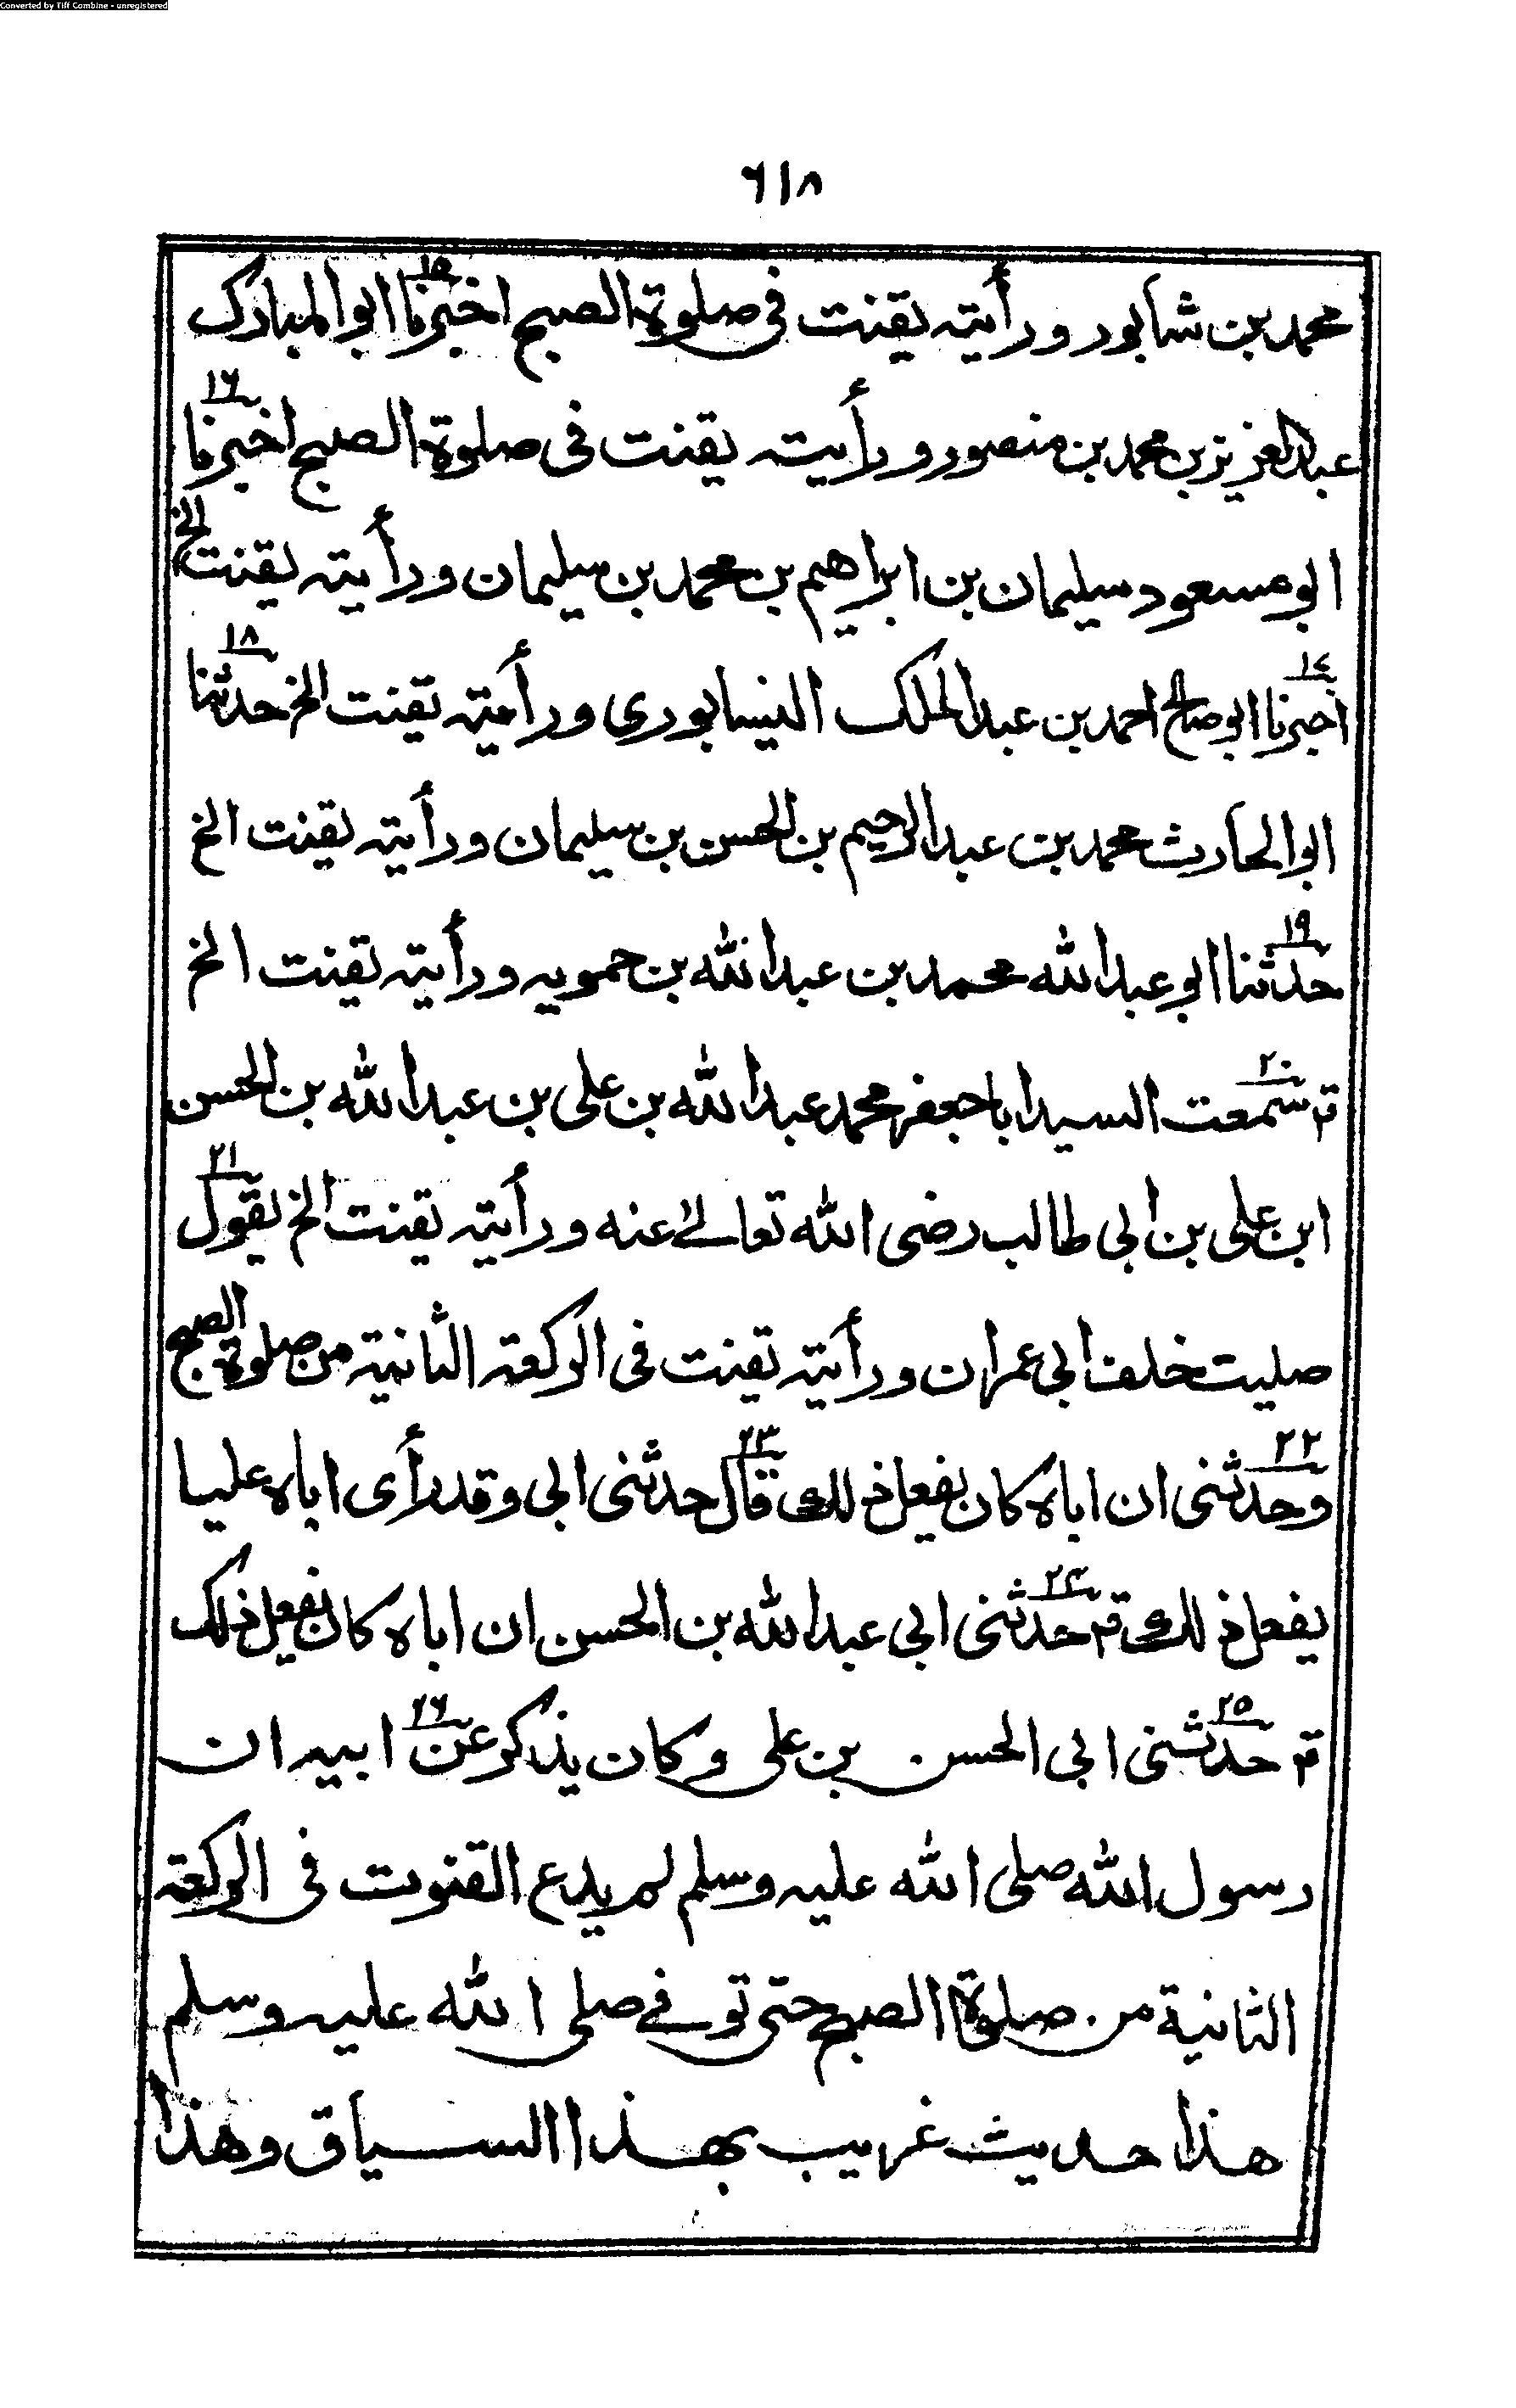 Converted by Tiff Combine - unregistered
٦١٨
محمد بن شابور ورأيته يقنت فى صلوة الصبح اخبرنا ١٥ ابو المبارك
عبد العزيز بن محمد بن منصور ورأيته يقنت فى صلوة الصبح اخبرنا ١٦
ابو مسعود سليمان بن ابراهيم بن محمد بن سليمان ورأيته يقنت الخ
اخبرنا ١٤ ابو صالح احمد بن عبد الملك النيسابورى ورأيته يقنت الخ حدثنا ١٨
ابو الحارث محمد بن عبد الرحيم بن الحسن بن سليمان ورأيته يقنت الخ
حدثنا ١٩ ابو عبد الله محمد بن عبد الله بن حمويه ورأيته يقنت الخ
قم سمعت ٢٠ السيد ابا جعفر محمد عبد الله بن على بن عبد الله بن الحسن
ابن على بن ابى طالب رضى الله تعالى عنه ورأيته يقنت الخ يقول ٢١
صليت خلف ابى عمران ورأيته يقنت فى الركعة الثانية من صلوة الصبح
وحدثنى ٢٢ ان اباه كان يفعل ذلك قال ٢٣ حدثنى ابى وقد رأى اباه عليا
يفعل ذلك قم حدثنى ٢٤ ابى عبد الله بن الحسن ان اباه كان يفعل ذلك
قم حدثنى ٢٥ ابى الحسن بن على وكان يذكر عن ٢٦ ابيه ان
رسول الله صلى الله عليه وسلم لم يدع القنوت فى الركعة
الثانية من صلوة الصبح حتى توفى صلى الله عليه وسلم
هذا حديث غريب بهذا السياق وهذا